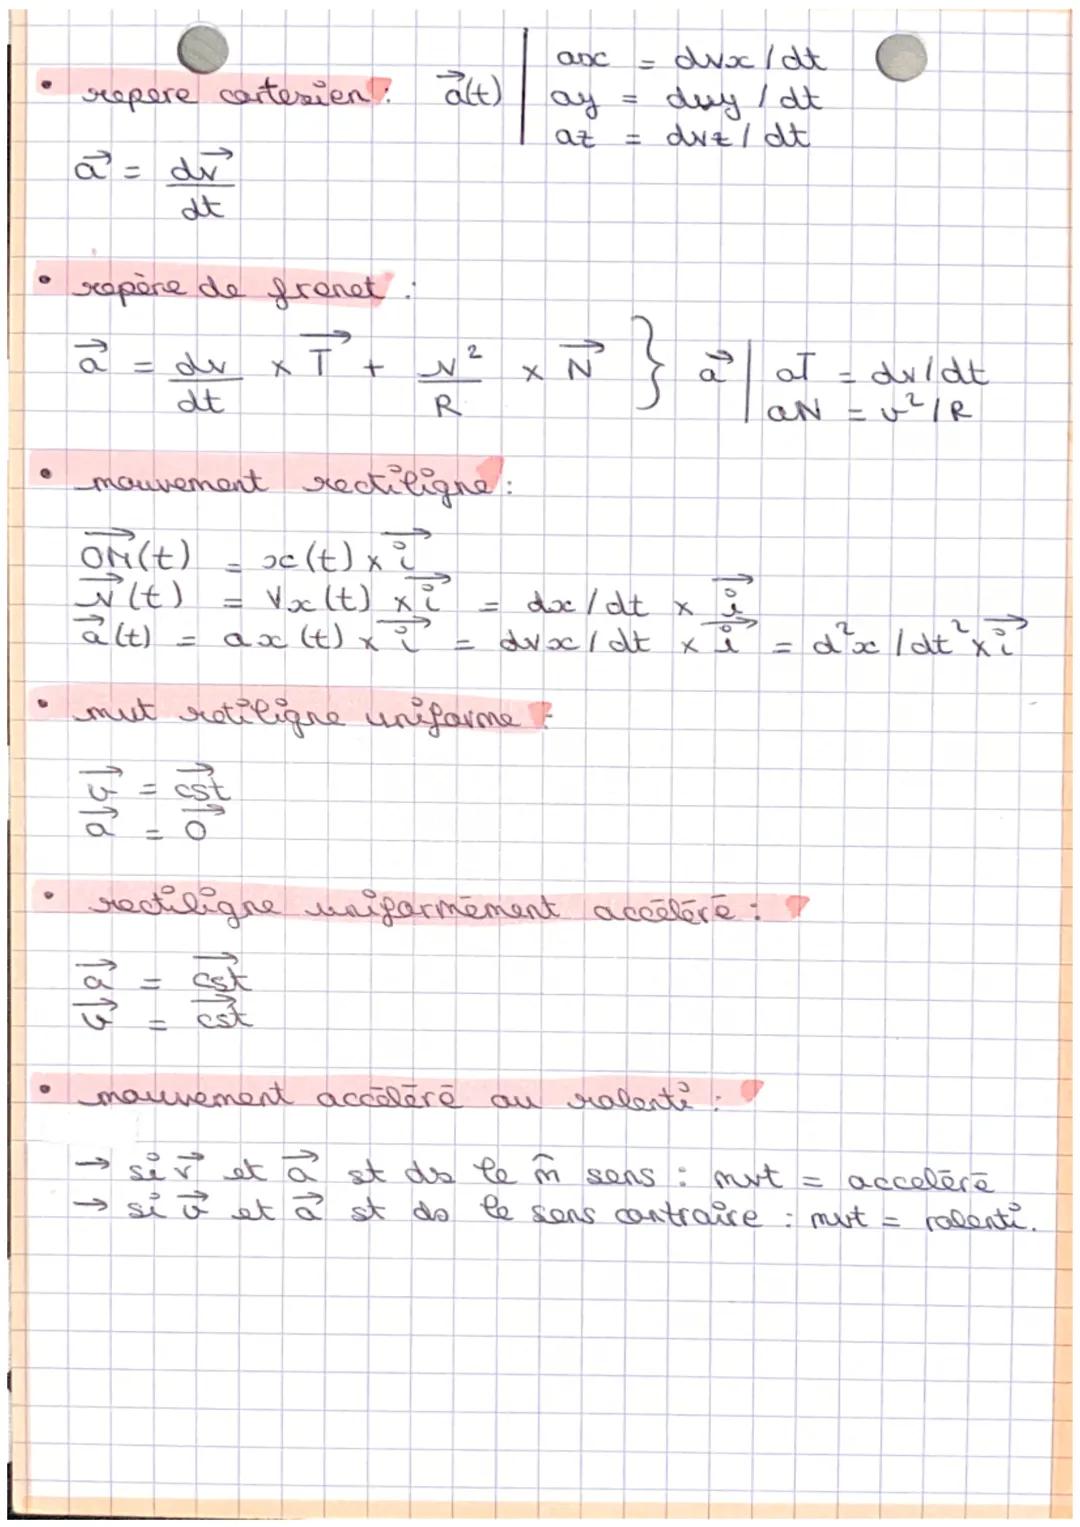 • repere cartesien : a⃗(t) | ax = dvx / dt
ay = dvy / dt
az = dvz / dt
a⃗ = dv⃗ / dt
• repère de frenet :
a⃗ = dv/dt × T⃗ + v²/R × N⃗ } a⃗ | aT = dv/dt
aN = v²/R
• mouvement rectiligne :
OM⃗(t) = x(t) × i⃗
v⃗(t) = Vx(t) × i⃗ = dx/dt × i⃗
a⃗(t) = ax(t) × i⃗ = dvx/dt × i⃗ = d²x/dt² × i⃗
• mvt retiligne uniforme :
v⃗ = cst⃗
a⃗ = 0⃗
• rectiligne uniformément accéléré :
a⃗ = cst⃗
v⃗ = cst⃗
• mouvement accéléré ou ralenti :
→ si v⃗ et a⃗ st ds le m̂ sens : mvt = acceléré
→ si v⃗ et a⃗ st ds le sens contraire : mvt = ralenti.